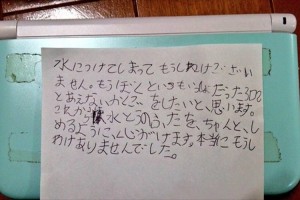 水につけてしまってもうしわけございい
ません。もうぼくといきもいっしょだった3DS
とあえないかくごをしたいと、思います。
これから水とうのふたを、ちゃんと、し
めるように、心がけます。本当にもうし
わけありませんでした。